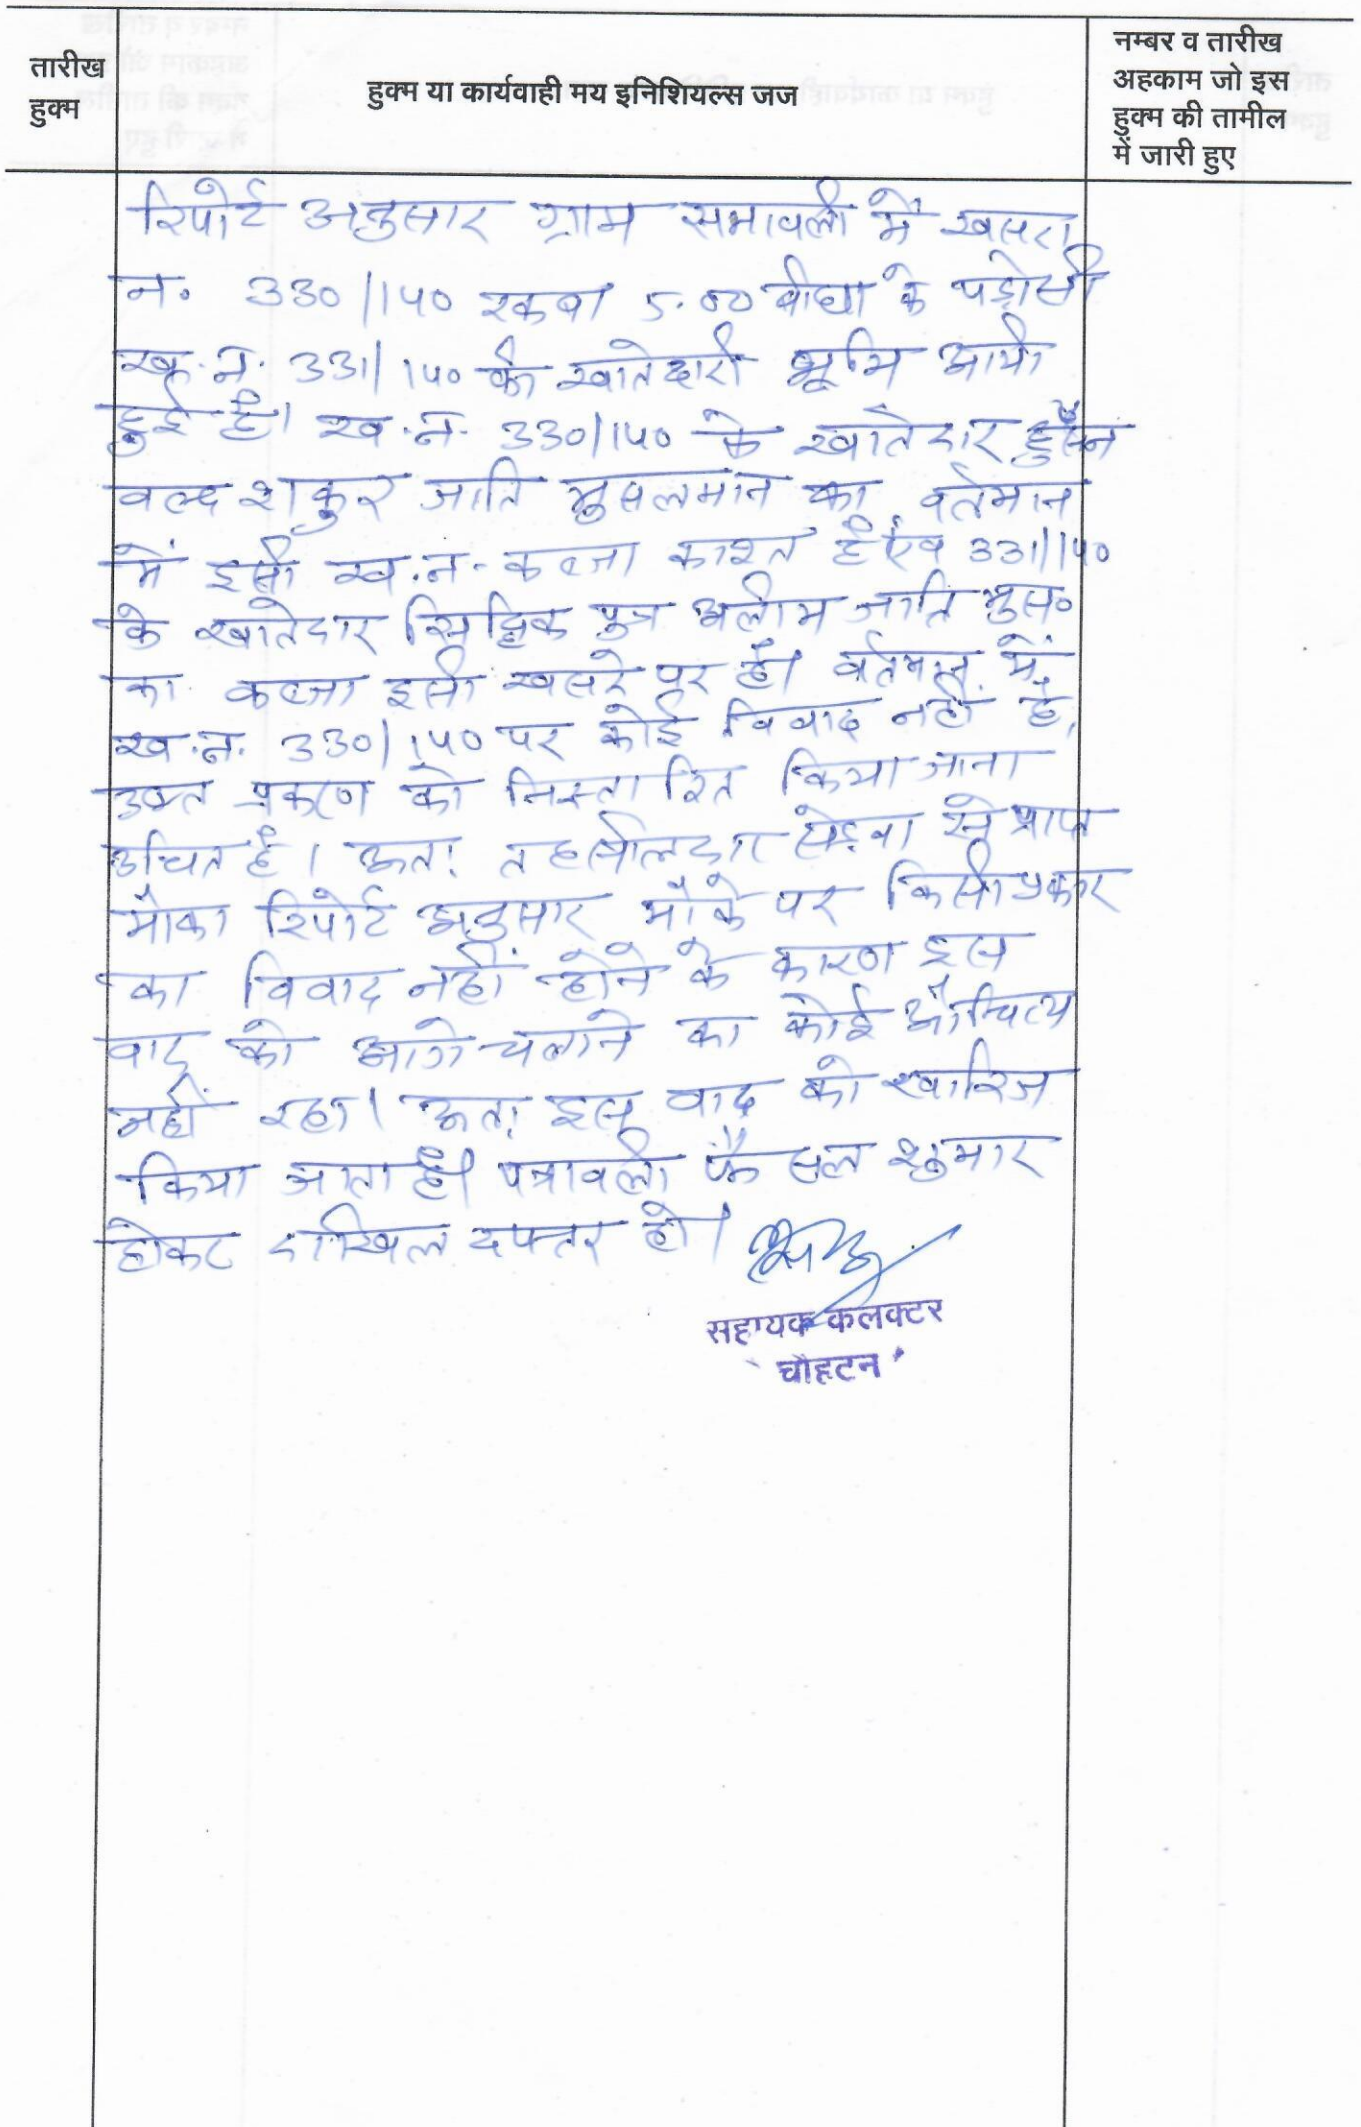 तारीख
हुक्म
हुक्म या कार्यवाही मय इनिशियल्स जज
नम्बर व तारीख
अहकाम जो इस
हुक्म की तामील
में जारी हुए
रिपोर्ट अनुसार ग्राम समावली में खसरा
न. 330/140 रकबा 5.00 बीघा के पड़ोसी
ख.न. 331/140 की खातेदारी भूमि आयी
हुई है। ख.न. 330/140 के खातेदार हुसैन
वल्द शकुर जाति मुसलमान का वर्तमान
में इसी ख.न. कब्जा काश्त है एंव 331/140
के खातेदार सिद्दिक पुत्र अलीम जाति मुस॰
का कब्जा इसी खसरे पर है। वर्तमान में
ख.न. 330/140 पर कोई विवाद नहीं है,
उक्त प्रकरण को निस्तारित किया जाना
उचित है। अतः तहसीलदार सेड़वा से प्राप्त
मौका रिपोर्ट अनुसार मौके पर किसी प्रकार
का विवाद नहीं होने के कारण इस
वाद को आगे चलाने का कोई औचित्य
नहीं रहा। अतः इस वाद को खारिज
किया जाता है। पत्रावली फैसल शुमार
होकर दाखिल दफ्तर हो।
सहायक कलक्टर
चौहटन